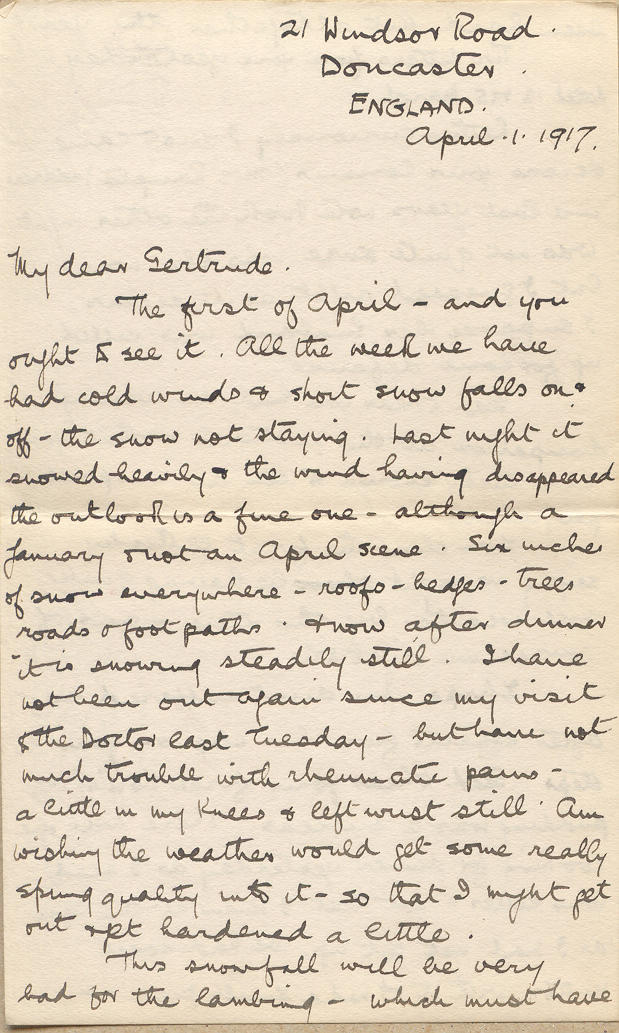 21 Windsor Road.
Doncaster.
ENGLAND.
April. 1. 1917.
My dear Gertrude.
The first of April - and you
ought to see it. All the week we have
had cold winds & short snow falls on &
off - the snow not staying. Last night it
snowed heavily & the wind having disappeared
the outlook is a fine one - although a
January & not an April scene. Six inches
of snow everywhere - roofs - hedges - trees
roads & foot paths. & now after dinner
it is snowing steadily still. I have
not been out again since my visit
to the Doctor last Tuesday - but have not
much trouble with rheumatic pains -
a little in my knees & left wrist still. Am
wishing the weather would get some really
spring quality into it - so that I might get
out & get hardened a little.
This snowfall will be very
bad for the lambing - which must have